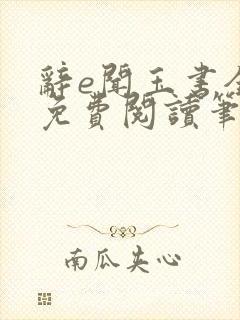 辭e聞玉書全
免費閱讀筆
南瓜夾心